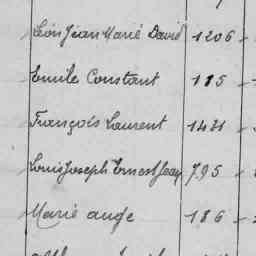 Léon Jean Marie David 1206
Emile Constant 115
François Laurent 1421
Louis Joseph Ernest Jean 795
Marie ange 186